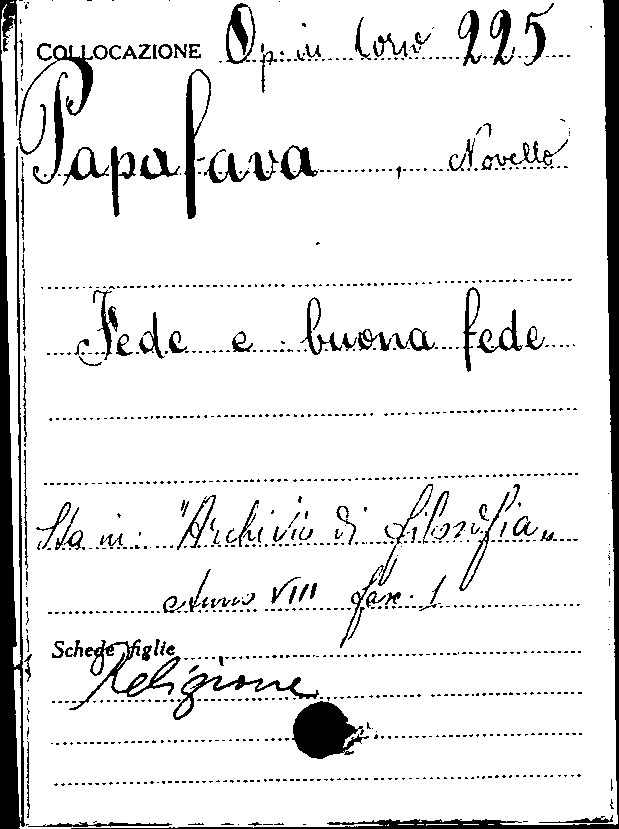 COLLOCAZIONE Op. in Corso 225
Papafava, Novello
Fede e buona fede
Sta in: "Archivio di filosofia„
Anno VIII fasc. 1
Schede figlie
Religione